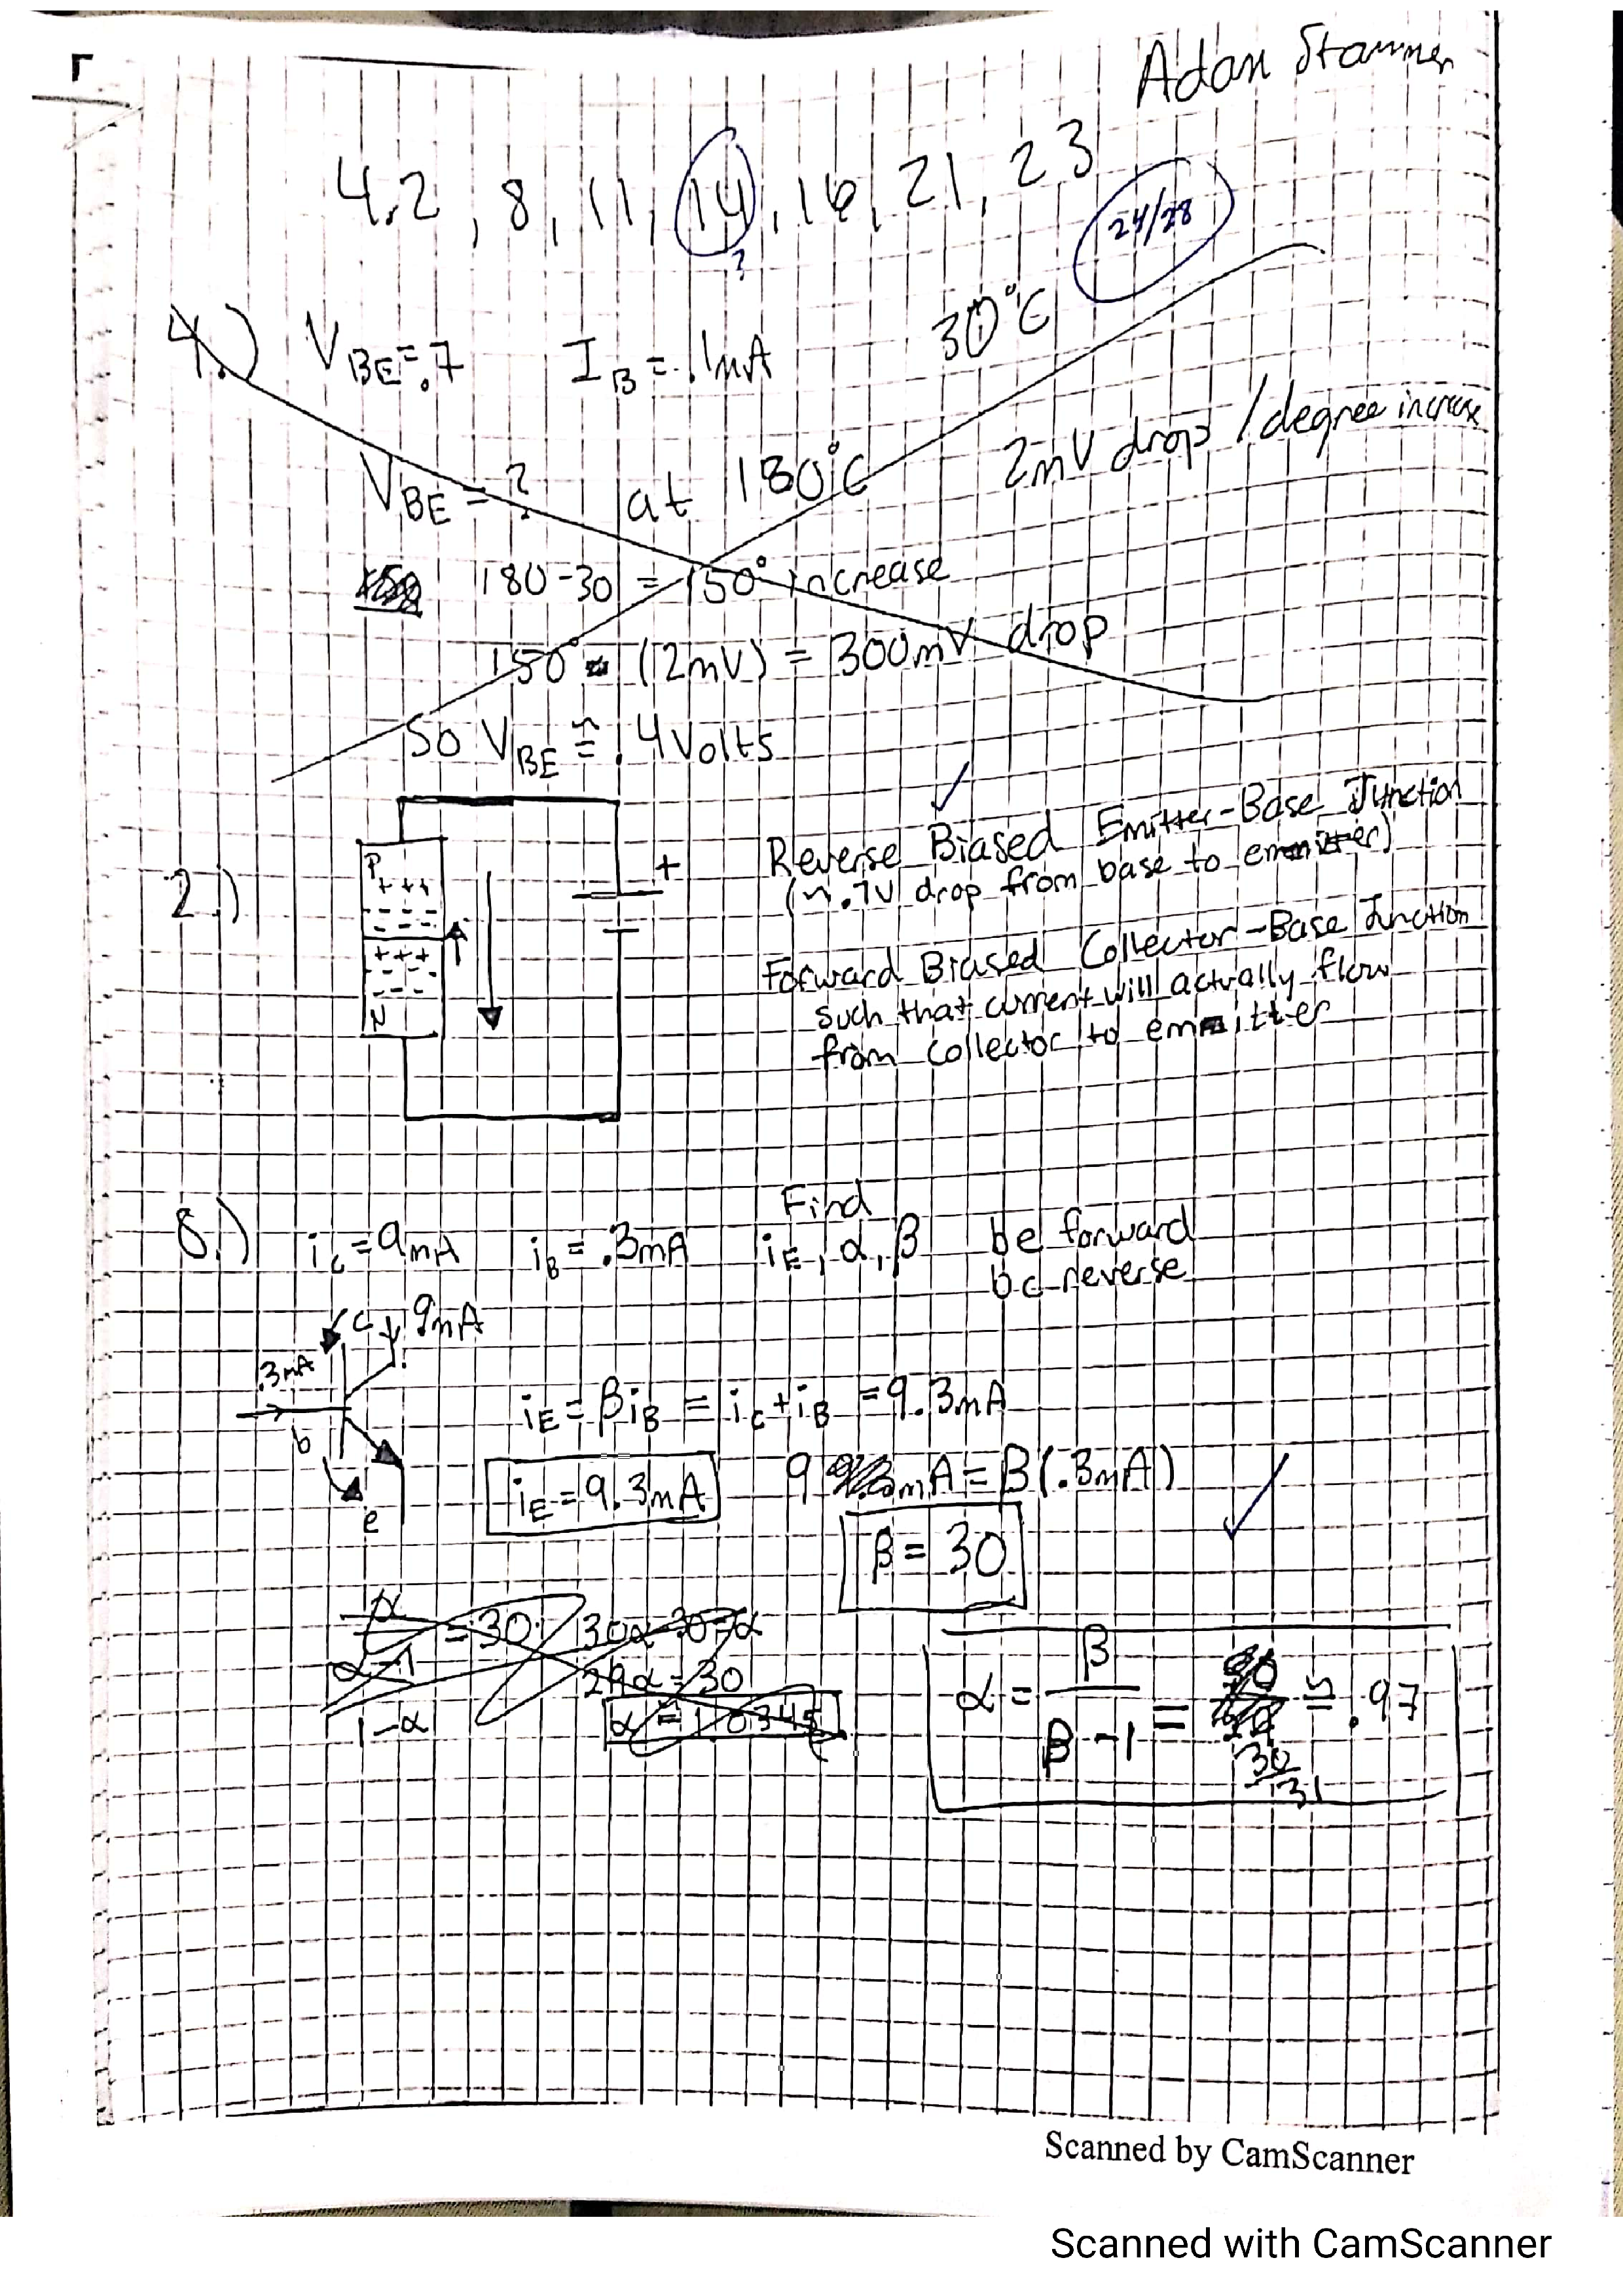 Adam Stammer
4.2, 8, 11, 14, 16, 21, 23
?
24/28
4.) VBE=.7 IB=.1mA 30°C
VBE=? at 180°C 2mV drop/degree increase
180-30 = 150° increase
150° (2mV) = 300mV drop
So VBE ≅ .4 Volts
2.)
P
+ ++
- - -
+++
- - -
N
+
Reverse Biased Emitter-Base Junction
(~.7V drop from base to emitter)
Forward Biased Collector-Base Junction
such that current will actually flow
from collector to emitter
8.) iC=9mA iB=.3mA Find iE, α, β be forward
bc reverse
c 9mA
.3mA
b
e
iE = βiB = iC+iB = 9.3mA
iE = 9.3mA 9 mA = β(.3mA)
β = 30
α/α-1 = 30 30α-30=α
29α = 30
1-α α = 1.0345
α = β/β-1 = 30/31 ≅ .97
Scanned by CamScanner
Scanned with CamScanner